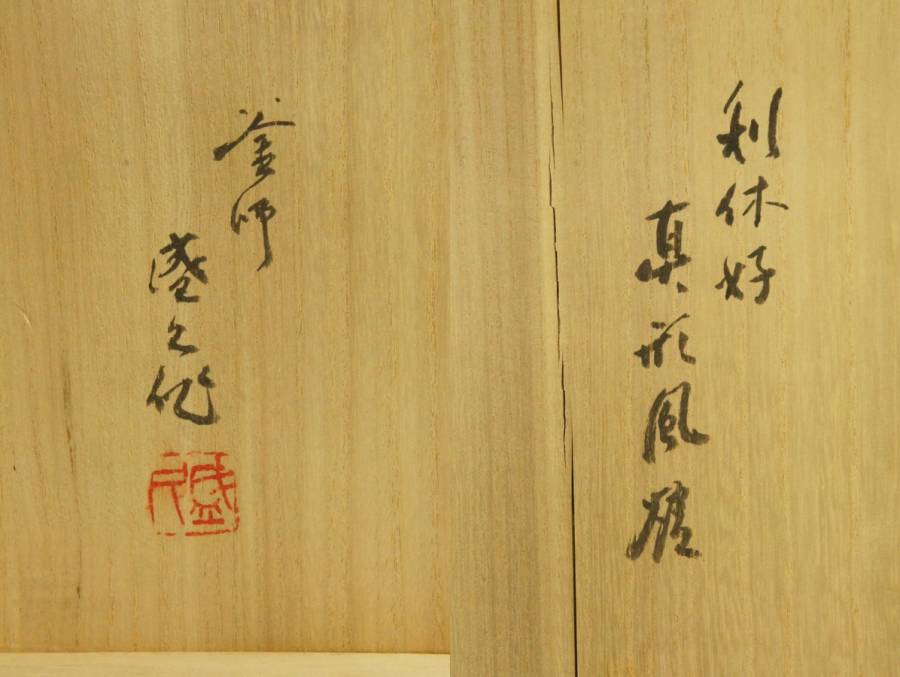 利休好
真形風炉
釜師
盛久作
盛久